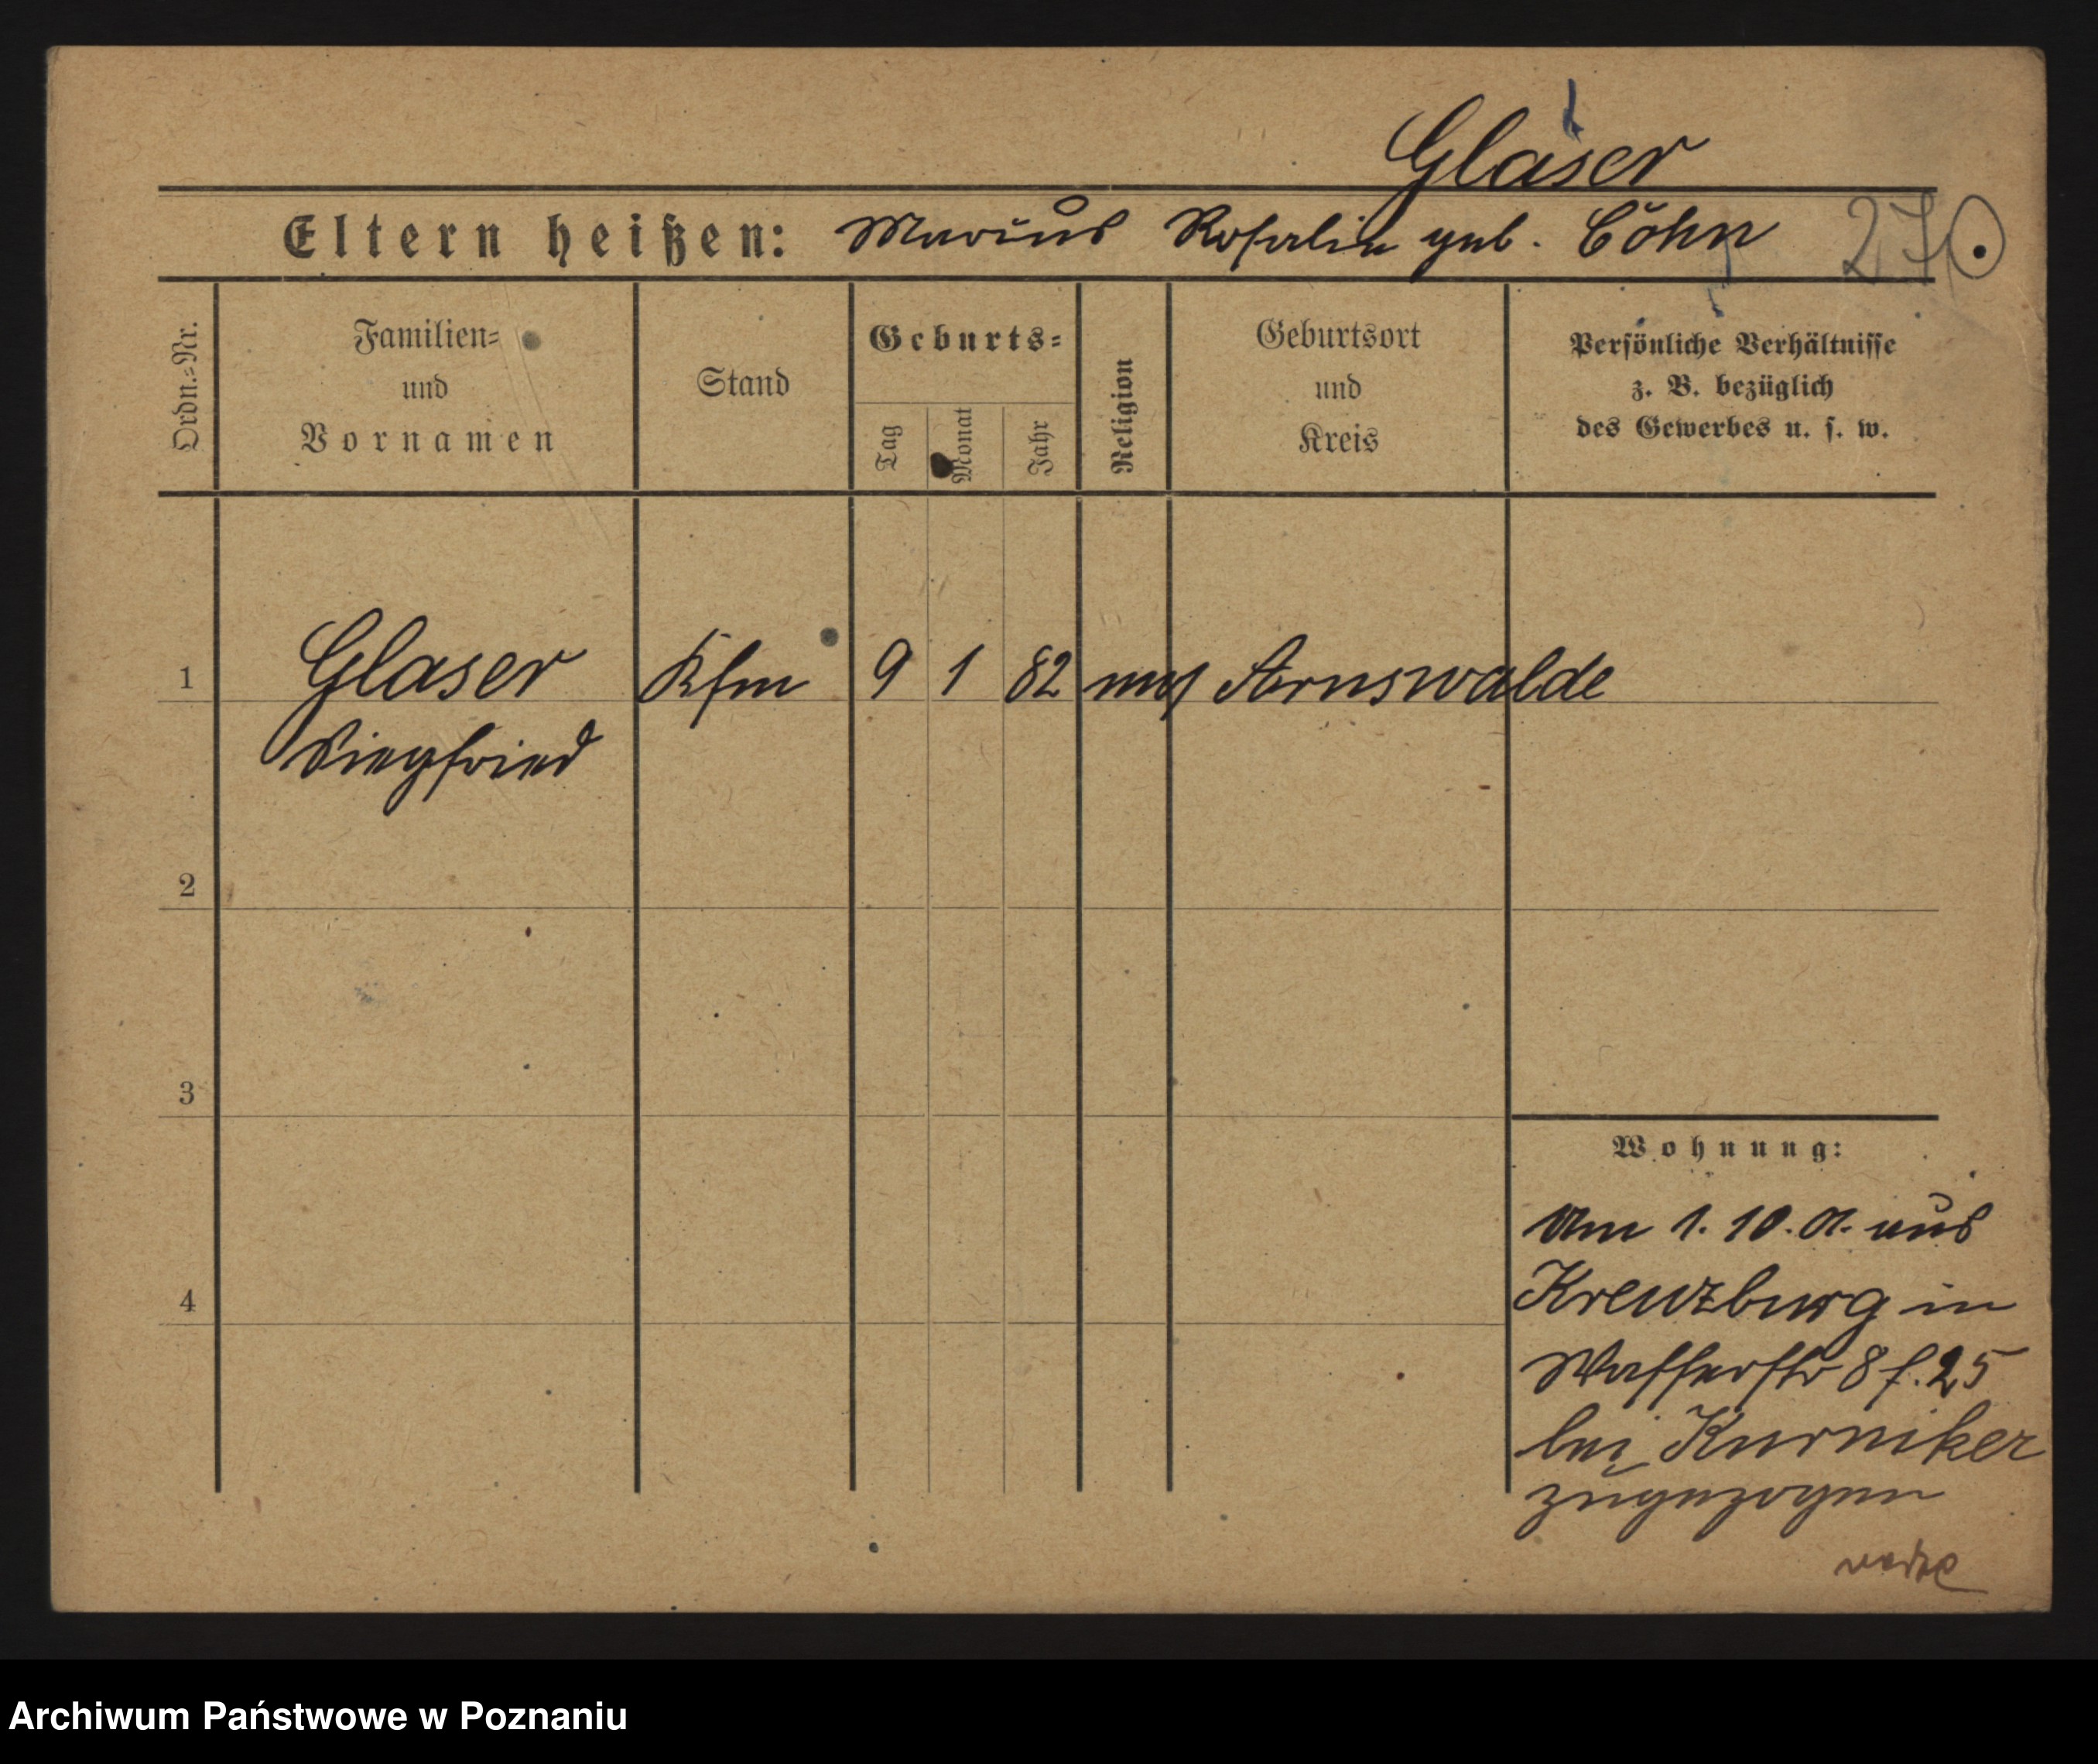 Glaser
Eltern heißen: Marius Rosalie geb. Cohn 270
Ordn.=Nr.
Familien=
und
Vornamen
Stand
Geburts=
Tag
Monat
Jahr
Religion
Geburtsort
und
Kreis
Persönliche Verhältnisse
z. B. bezüglich
des Gewerbes u. s. w.
1 Glaser Kfm 9 1 82 mos Arnswalde
Siegfried
2
3
4
Wohnung:
Am 1. 10. 01. aus
Kreuzburg in
Wasserstr 8/9. 25
bei Kurniker
zugezogen
Archiwum Państwowe w Poznaniu